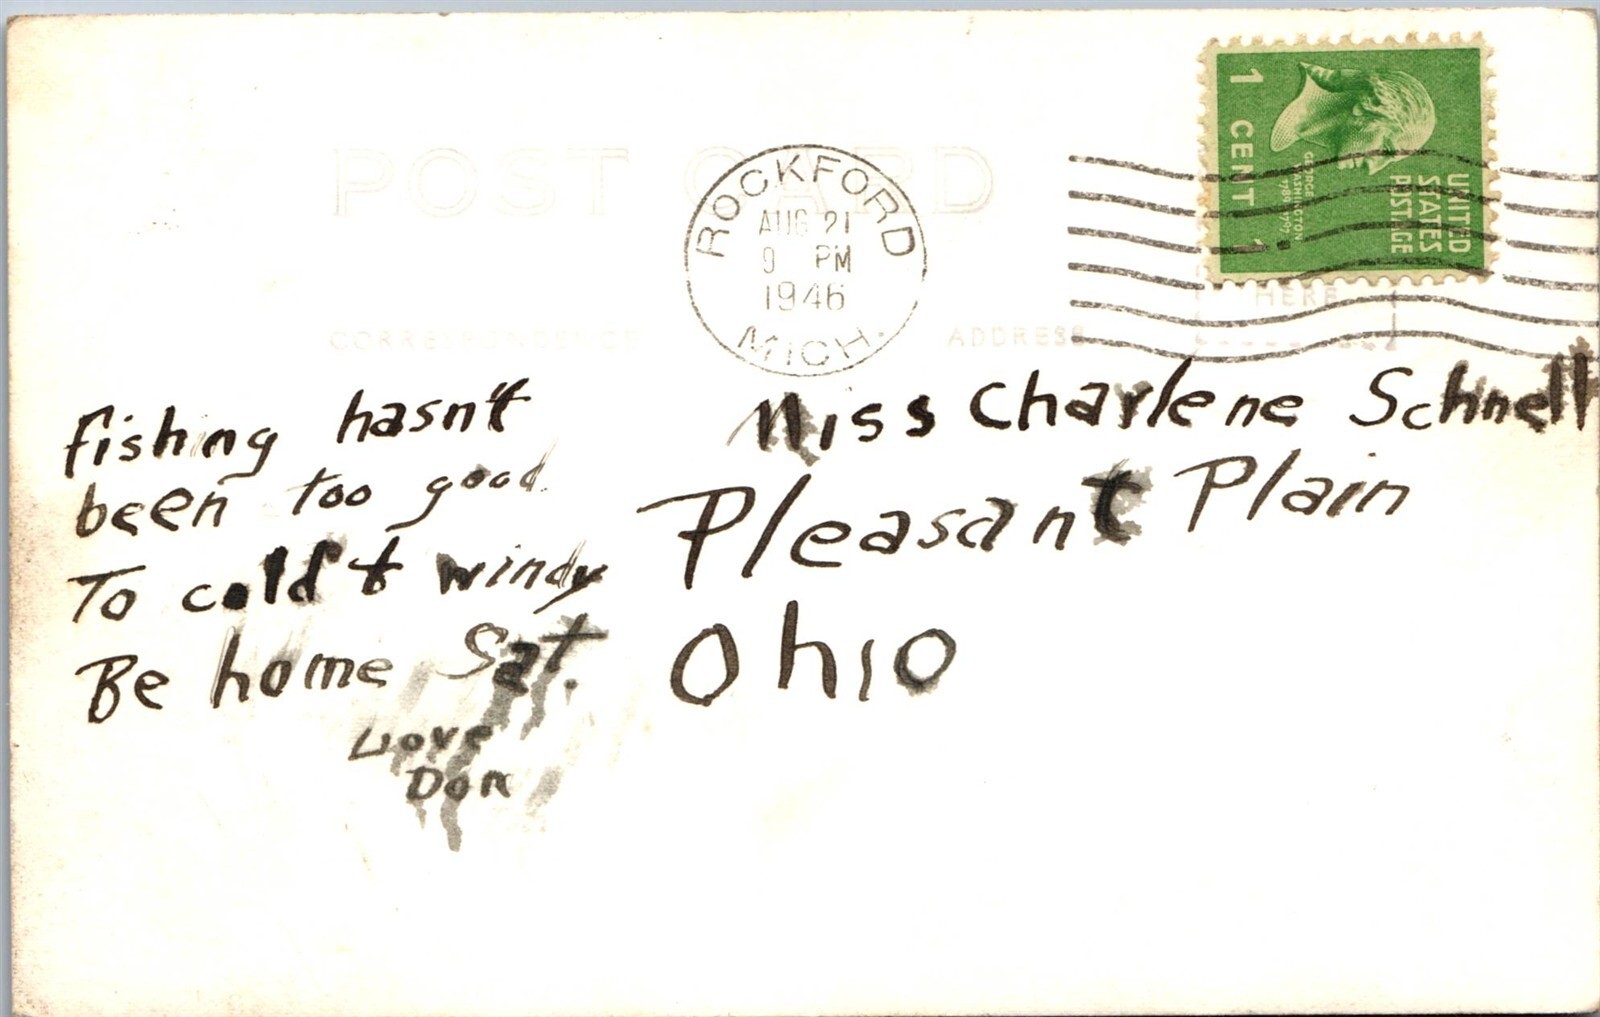 POST CARD
ROCKFORD
AUG 21
9 PM
1946
MICH.
1 CENT 1
GEORGE WASHINGTON
1789-1797
UNITED
STATES
POSTAGE
HERE
CORRESPONDENCE
ADDRESS
fishing hasn't
been too good
To cold & windy
Be home Sat.
Love
Don
Miss Charlene Schnell
Pleasant Plain
Ohio